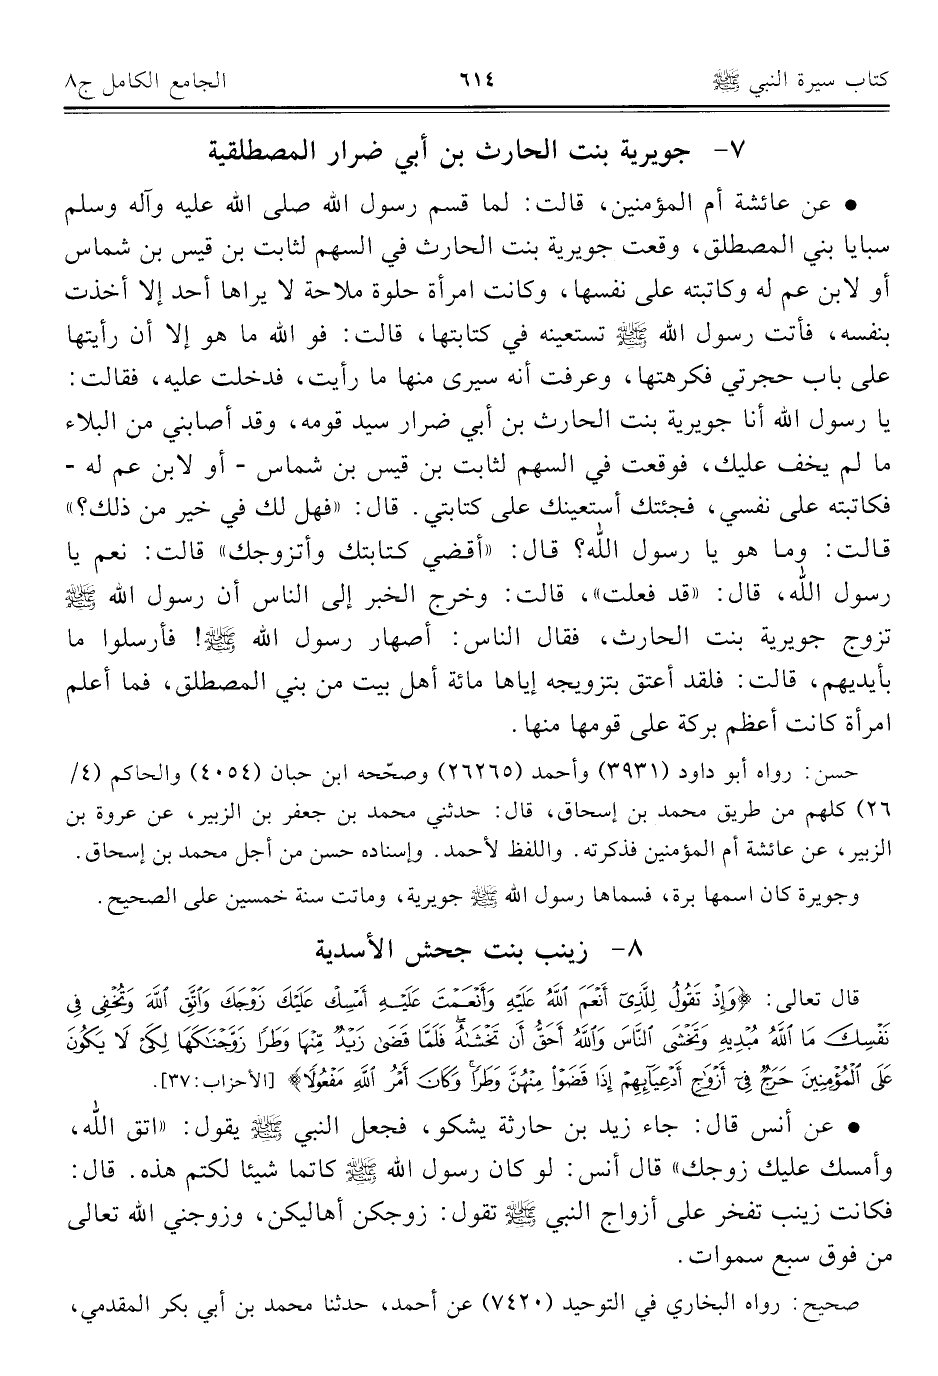 كتاب سيرة النبي ﷺ ٦١٤ الجامع الكامل ج٨
٧- جويرية بنت الحارث بن أبي ضرار المصطلقية
● عن عائشة أم المؤمنين، قالت: لما قسم رسول الله صلى الله عليه وآله وسلم
سبايا بني المصطلق، وقعت جويرية بنت الحارث في السهم لثابت بن قيس بن شماس
أو لابن عم له وكاتبته على نفسها، وكانت امرأة حلوة ملاحة لا يراها أحد إلا أخذت
بنفسه، فأتت رسول الله ﷺ تستعينه في كتابتها، قالت: فو الله ما هو إلا أن رأيتها
على باب حجرتي فكرهتها، وعرفت أنه سيرى منها ما رأيت، فدخلت عليه، فقالت:
يا رسول الله أنا جويرية بنت الحارث بن أبي ضرار سيد قومه، وقد أصابني من البلاء
ما لم يخف عليك، فوقعت في السهم لثابت بن قيس بن شماس - أو لابن عم له -
فكاتبته على نفسي، فجئتك أستعينك على كتابتي. قال: «فهل لك في خير من ذلك؟»
قالت: وما هو يا رسول الله؟ قال: «أقضي كتابتك وأتزوجك» قالت: نعم يا
رسول الله، قال: «قد فعلت»، قالت: وخرج الخبر إلى الناس أن رسول الله ﷺ
تزوج جويرية بنت الحارث، فقال الناس: أصهار رسول الله ﷺ! فأرسلوا ما
بأيديهم، قالت: فلقد أعتق بتزويجه إياها مائة أهل بيت من بني المصطلق، فما أعلم
امرأة كانت أعظم بركة على قومها منها.
حسن: رواه أبو داود (٣٩٣١) وأحمد (٢٦٢٦٥) وصحّحه ابن حبان (٤٠٥٤) والحاكم (٤/
٢٦) كلهم من طريق محمد بن إسحاق، قال: حدثني محمد بن جعفر بن الزبير، عن عروة بن
الزبير، عن عائشة أم المؤمنين فذكرته. واللفظ لأحمد. وإسناده حسن من أجل محمد بن إسحاق.
وجويرة كان اسمها برة، فسماها رسول الله ﷺ جويرية، وماتت سنة خمسين على الصحيح.
٨- زينب بنت جحش الأسدية
قال تعالى: ﴿وَإِذْ تَقُولُ لِلَّذِىٓ أَنْعَمَ ٱللَّهُ عَلَيْهِ وَأَنْعَمْتَ عَلَيْهِ أَمْسِكْ عَلَيْكَ زَوْجَكَ وَٱتَّقِ ٱللَّهَ وَتُخْفِى فِى
نَفْسِكَ مَا ٱللَّهُ مُبْدِيهِ وَتَخْشَى ٱلنَّاسَ وَٱللَّهُ أَحَقُّ أَن تَخْشَىٰهُ ۖ فَلَمَّا قَضَىٰ زَيْدٌ مِّنْهَا وَطَرًا زَوَّجْنَٰكَهَا لِكَىْ لَا يَكُونَ
عَلَى ٱلْمُؤْمِنِينَ حَرَجٌ فِىٓ أَزْوَٰجِ أَدْعِيَآئِهِمْ إِذَا قَضَوْا۟ مِنْهُنَّ وَطَرًا ۚ وَكَانَ أَمْرُ ٱللَّهِ مَفْعُولًا﴾ [الأحزاب: ٣٧].
● عن أنس قال: جاء زيد بن حارثة يشكو، فجعل النبي ﷺ يقول: «اتق الله،
وأمسك عليك زوجك» قال أنس: لو كان رسول الله ﷺ كاتما شيئا لكتم هذه. قال:
فكانت زينب تفخر على أزواج النبي ﷺ تقول: زوجكن أهاليكن، وزوجني الله تعالى
من فوق سبع سموات.
صحيح: رواه البخاري في التوحيد (٧٤٢٠) عن أحمد، حدثنا محمد بن أبي بكر المقدمي،